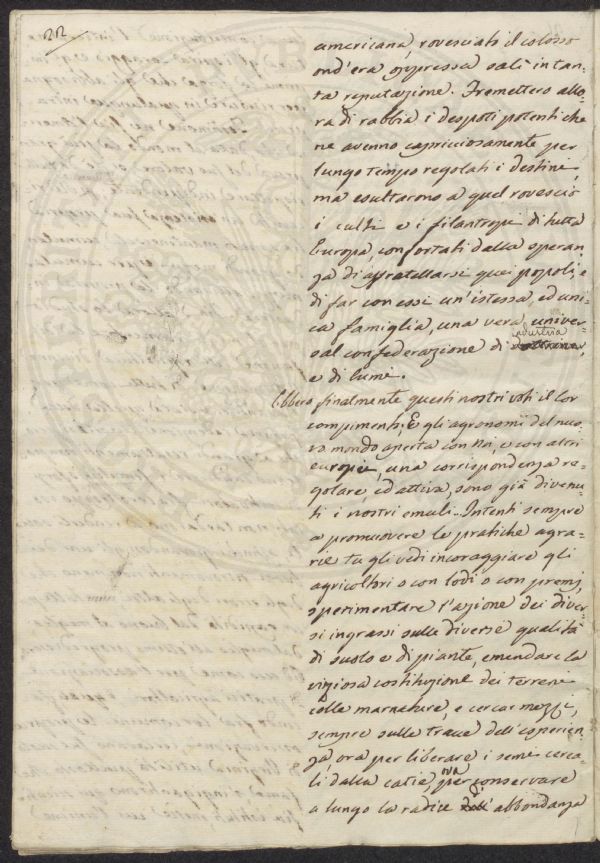 22
americana, rovesciati il colosso
ond'era oppressa salì in tan-
ta reputazione. Fremettero allo-
ra di rabbia i despoti potenti che
ne avenno capricciosamente per
lungo tempo regolati i destini,
ma esultarono a quel rovescio
i culti e i filantropi di tutta
Europa, confortati dalla speran-
za di affratellarsi quei popoli, e
di far con essi un'istessa, ed uni-
ca famiglia, una vera univer-
sal confederazione di industria
e di lumi.
Ebbero finalmente questi nostri voti il lor
compimento; E gli agronomi del nuo-
vo mondo aperta con Noi, e con altri
europei, una corrispondenza re-
golare, ed attiva, sono già divenu-
ti i nostri emuli. Intenti sempre
a promuovere le pratiche agra-
rie tu gli vedi incoraggiare gli
agricoltori o con lodi o con premj,
sperimentare l'azione dei diver-
si ingrassi sulle diverse qualità
di suolo e di piante, emendare la
viziosa costituzione dei terreni
colle marnature, e cercar mezzi,
sempre sulle tracce dell'esperien-
za, ora per liberare i semi cerea-
li dalla carie, ora per conservare
a lungo la radice d'abbondanza